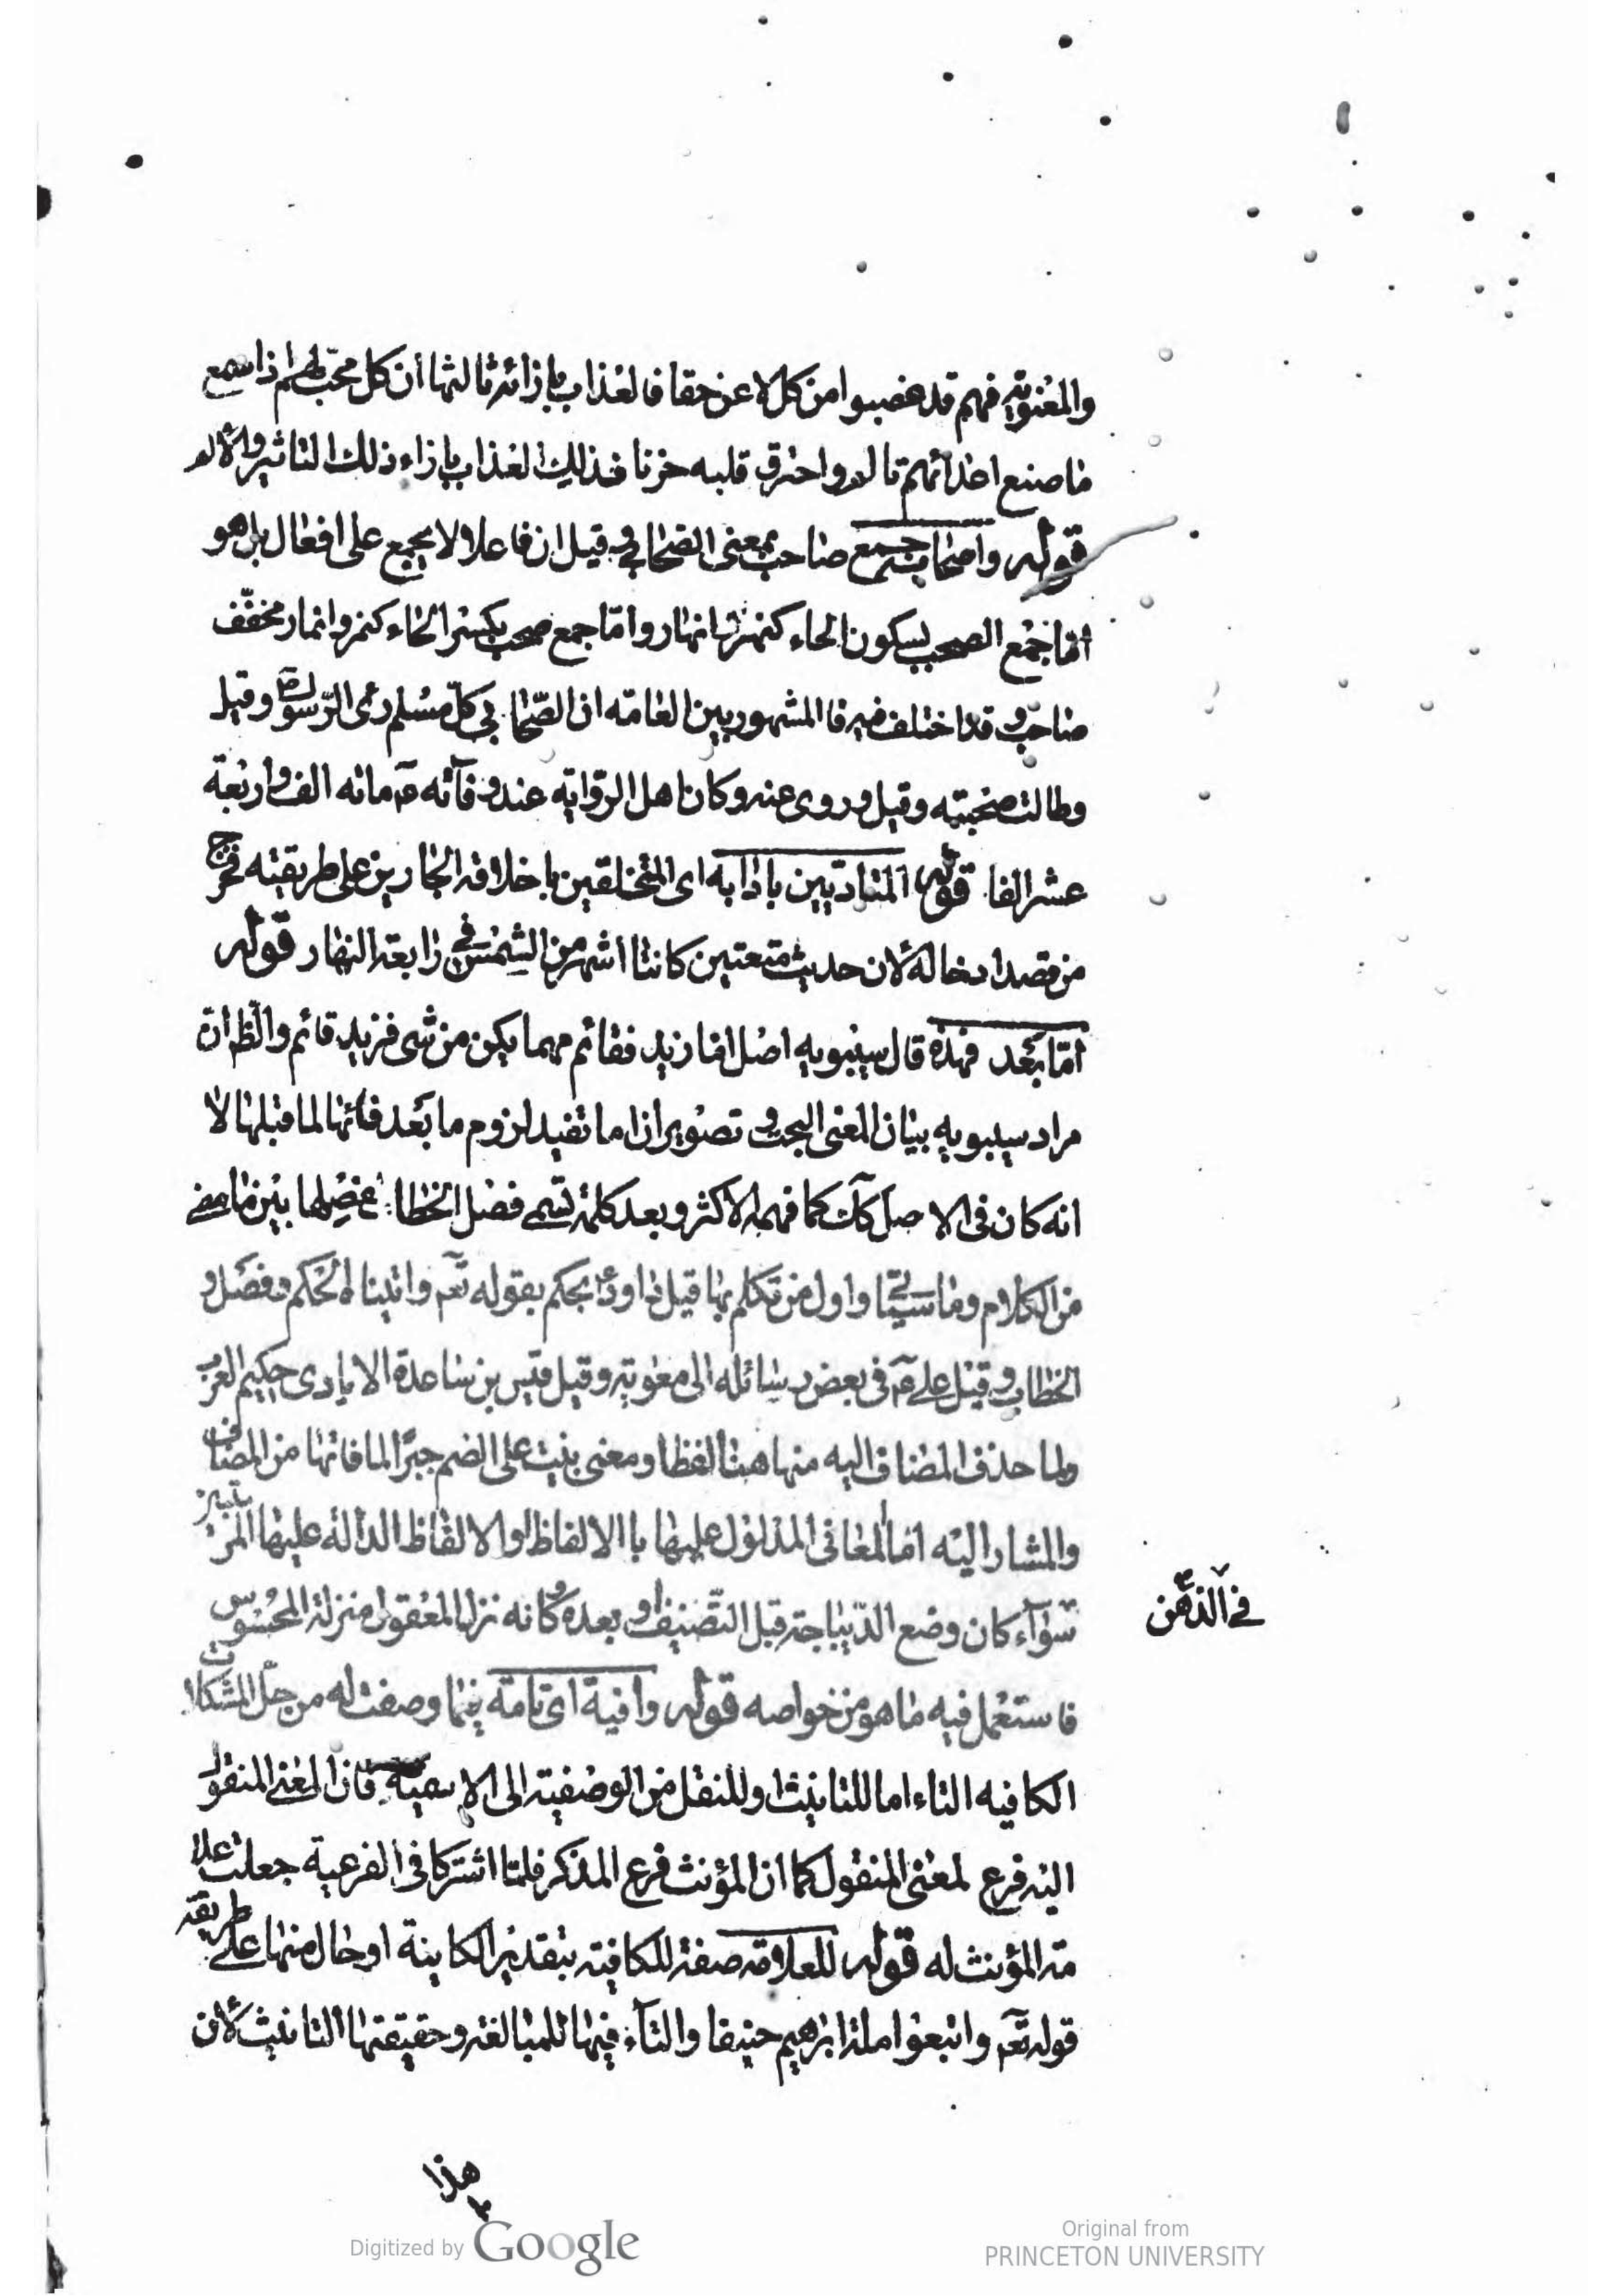 والمعنوية فهم قد غصبوا من كل لاعن حقا فالعذاب بازائه ثالثها ان كل محب لهم اذا سمع
ما صنع اعدائهم تالم واحترق قلبه حزنا فذلك العذاب بازاء ذلك التاثير والالم
قوله واصحابه جمع صاحب بمعنى الصحابي وقيل ان فاعلا لا يجمع على افعال بل هو
اما جمع الصحب بسكون الحاء كنهر وانهار واما جمع صحب بكسر الحاء كنمر وانمار مخفف
صاحب وقد اختلف فيه فالمشهور بين العامه ان الصحابي كل مسلم راى الرسول ص وقيل
وطالت صحبته وقيل وروى عنه وكان اهل الرواية عند وفاته ع مائه الف واربعة
عشر الفا قوله المتادبين بادابه اى المتخلقين باخلاقه الجارين على طريقته فخرج
من قصد ادخاله لان حديث متعتين كانتا اشهر من الشمس فى رابعة النهار قوله
اما بعد فهذه قال سيبويه اصل اما زيد فقائم مهما يكن من شى فزيد قائم والظ ان
مراد سيبويه بيان المعنى البحت وتصوير ان اما تفيد لزوم ما بعد فائها لما قبلها لا
انه كان فى الاصل كك كما فهمه الاكثر وبعد كلمة تسمى فصل الخطاب لفصلها بين ما مضى
من الكلام وما سيجئ واول من تكلم بها قيل داود ع بحكم بقوله تعـ واتيناه الحكم وفصل
الخطاب وقيل على ع فى بعض رسائله الى معوية وقيل قس بن ساعدة الايادى حكيم العرب
ولما حذف المضاف اليه منها هنا لفظا ومعنى بنيت على الضم جبرا لما فاتها من المضاف
والمشار اليه اما المعانى المدلول عليها باالالفاظ او الالفاظ الدالة عليها المرتبين
فى الذهن
سواء كان وضع الديباجة قبل التصنيف او بعده وكانه نزل المعقول منزلة المحسوس
فاستعمل فيه ما هو من خواصه قوله وافية اى تامة فيما وصفت له من حل المشكلات
الكافيه التاء اما للتانيث او للنقل من الوصفية الى الاسمية فان المعنى المنقول
اليه فرع لمعنى المنقول كما ان المؤنث فرع المذكر فلما اشتركا فى الفرعية جعلت علا
مة المؤنث له قوله للعلامة صفة للكافية بتقدير الكاينة او حال منها على طريقة
قوله تعـ واتبعوا ملة ابرهيم حنيفا والتاء فيها للمبالغه وحقيقتها التانيث لان
هذا
Digitized by Google
Original from
PRINCETON UNIVERSITY